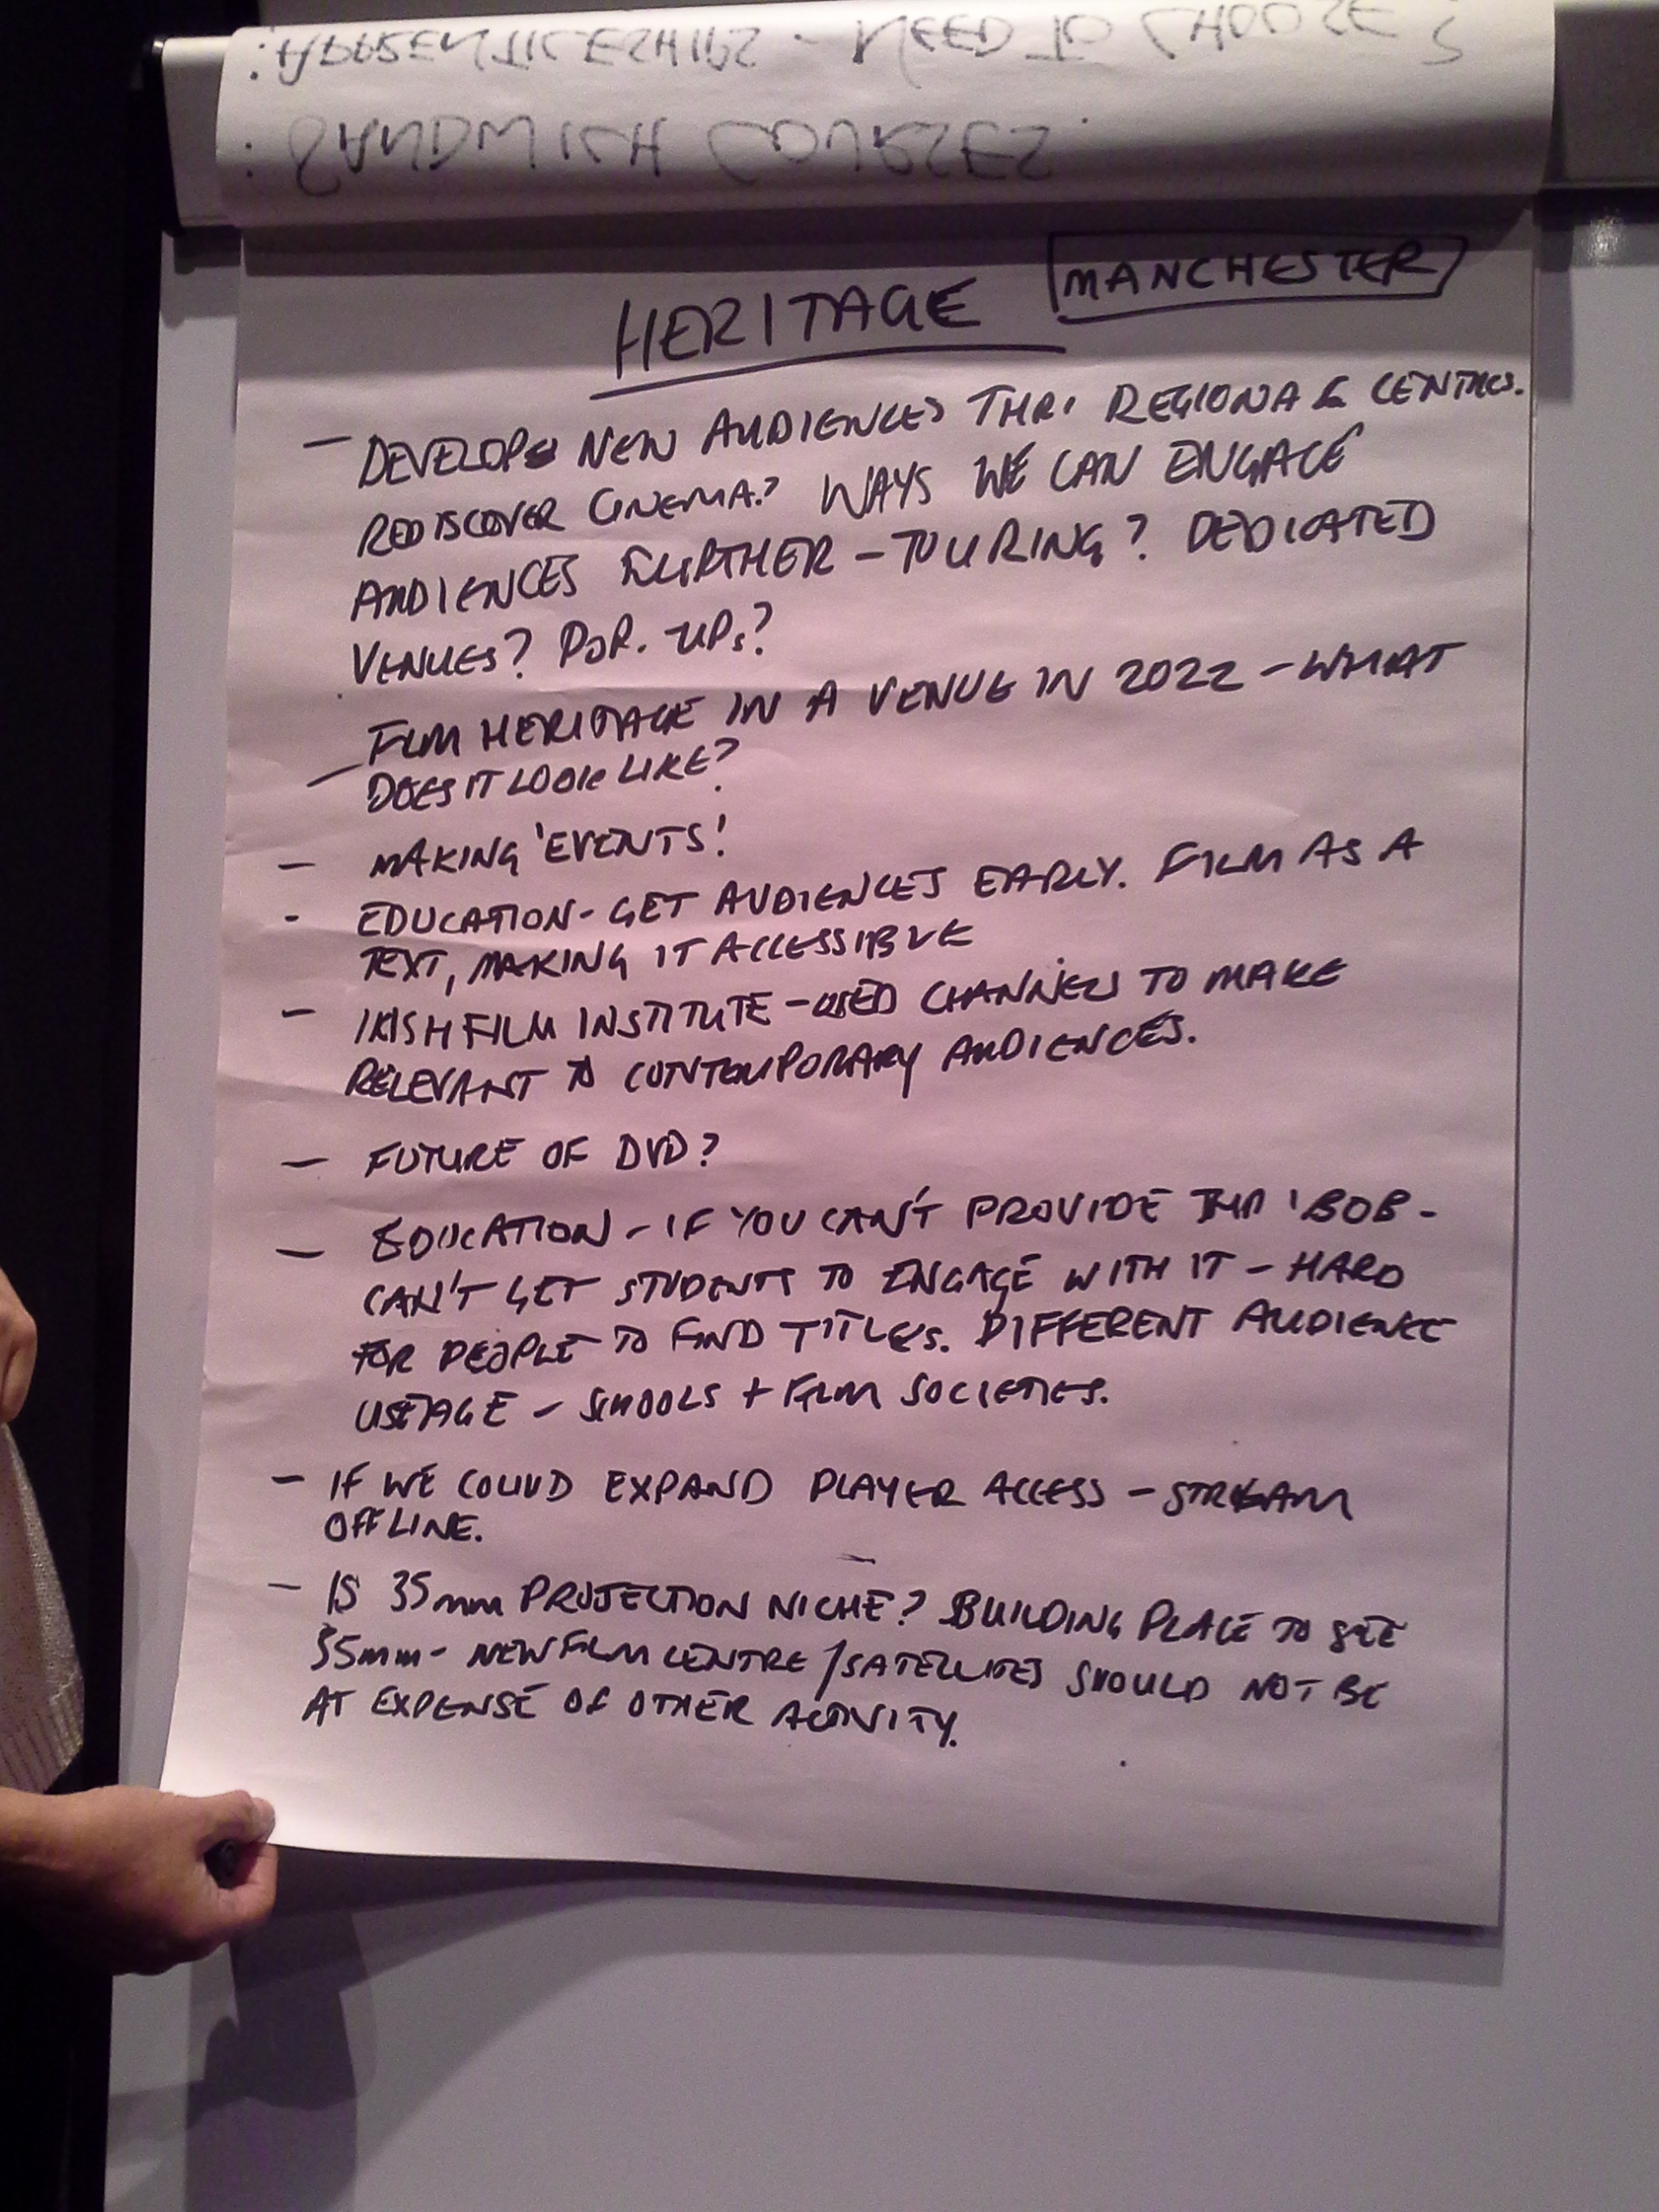 : APPRENTICESHIPS - NEED TO CHOOSE
: SANDWICH COURSES
HERITAGE MANCHESTER
- DEVELOP NEW AUDIENCES THRO REGIONAL CENTRES.
REDISCOVER CINEMA? WAYS WE CAN ENGAGE
AUDIENCES FURTHER - TOURING? DEDICATED
VENUES? POP. UPs?
FILM HERITAGE IN A VENUE IN 2022 - WHAT
- DOES IT LOOK LIKE?
- MAKING 'EVENTS!
- EDUCATION - GET AUDIENCES EARLY. FILM AS A
TEXT, MAKING IT ACCESSIBLE
- IRISH FILM INSTITUTE - USED CHANNELS TO MAKE
RELEVANT TO CONTEMPORARY AUDIENCES.
- FUTURE OF DVD?
- EDUCATION - IF YOU CAN'T PROVIDE 'BOB -
CAN'T GET STUDENTS TO ENGAGE WITH IT - HARD
FOR PEOPLE TO FIND TITLES. DIFFERENT AUDIENCE
USEAGE - SCHOOLS + FILM SOCIETIES.
- IF WE COULD EXPAND PLAYER ACCESS - STREAM
OFFLINE.
- IS 35mm PROJECTION NICHE? BUILDING PLACE TO SEE
35mm - NEW FILM CENTRE / SATELLITES SHOULD NOT BE
AT EXPENSE OF OTHER ACTIVITY.